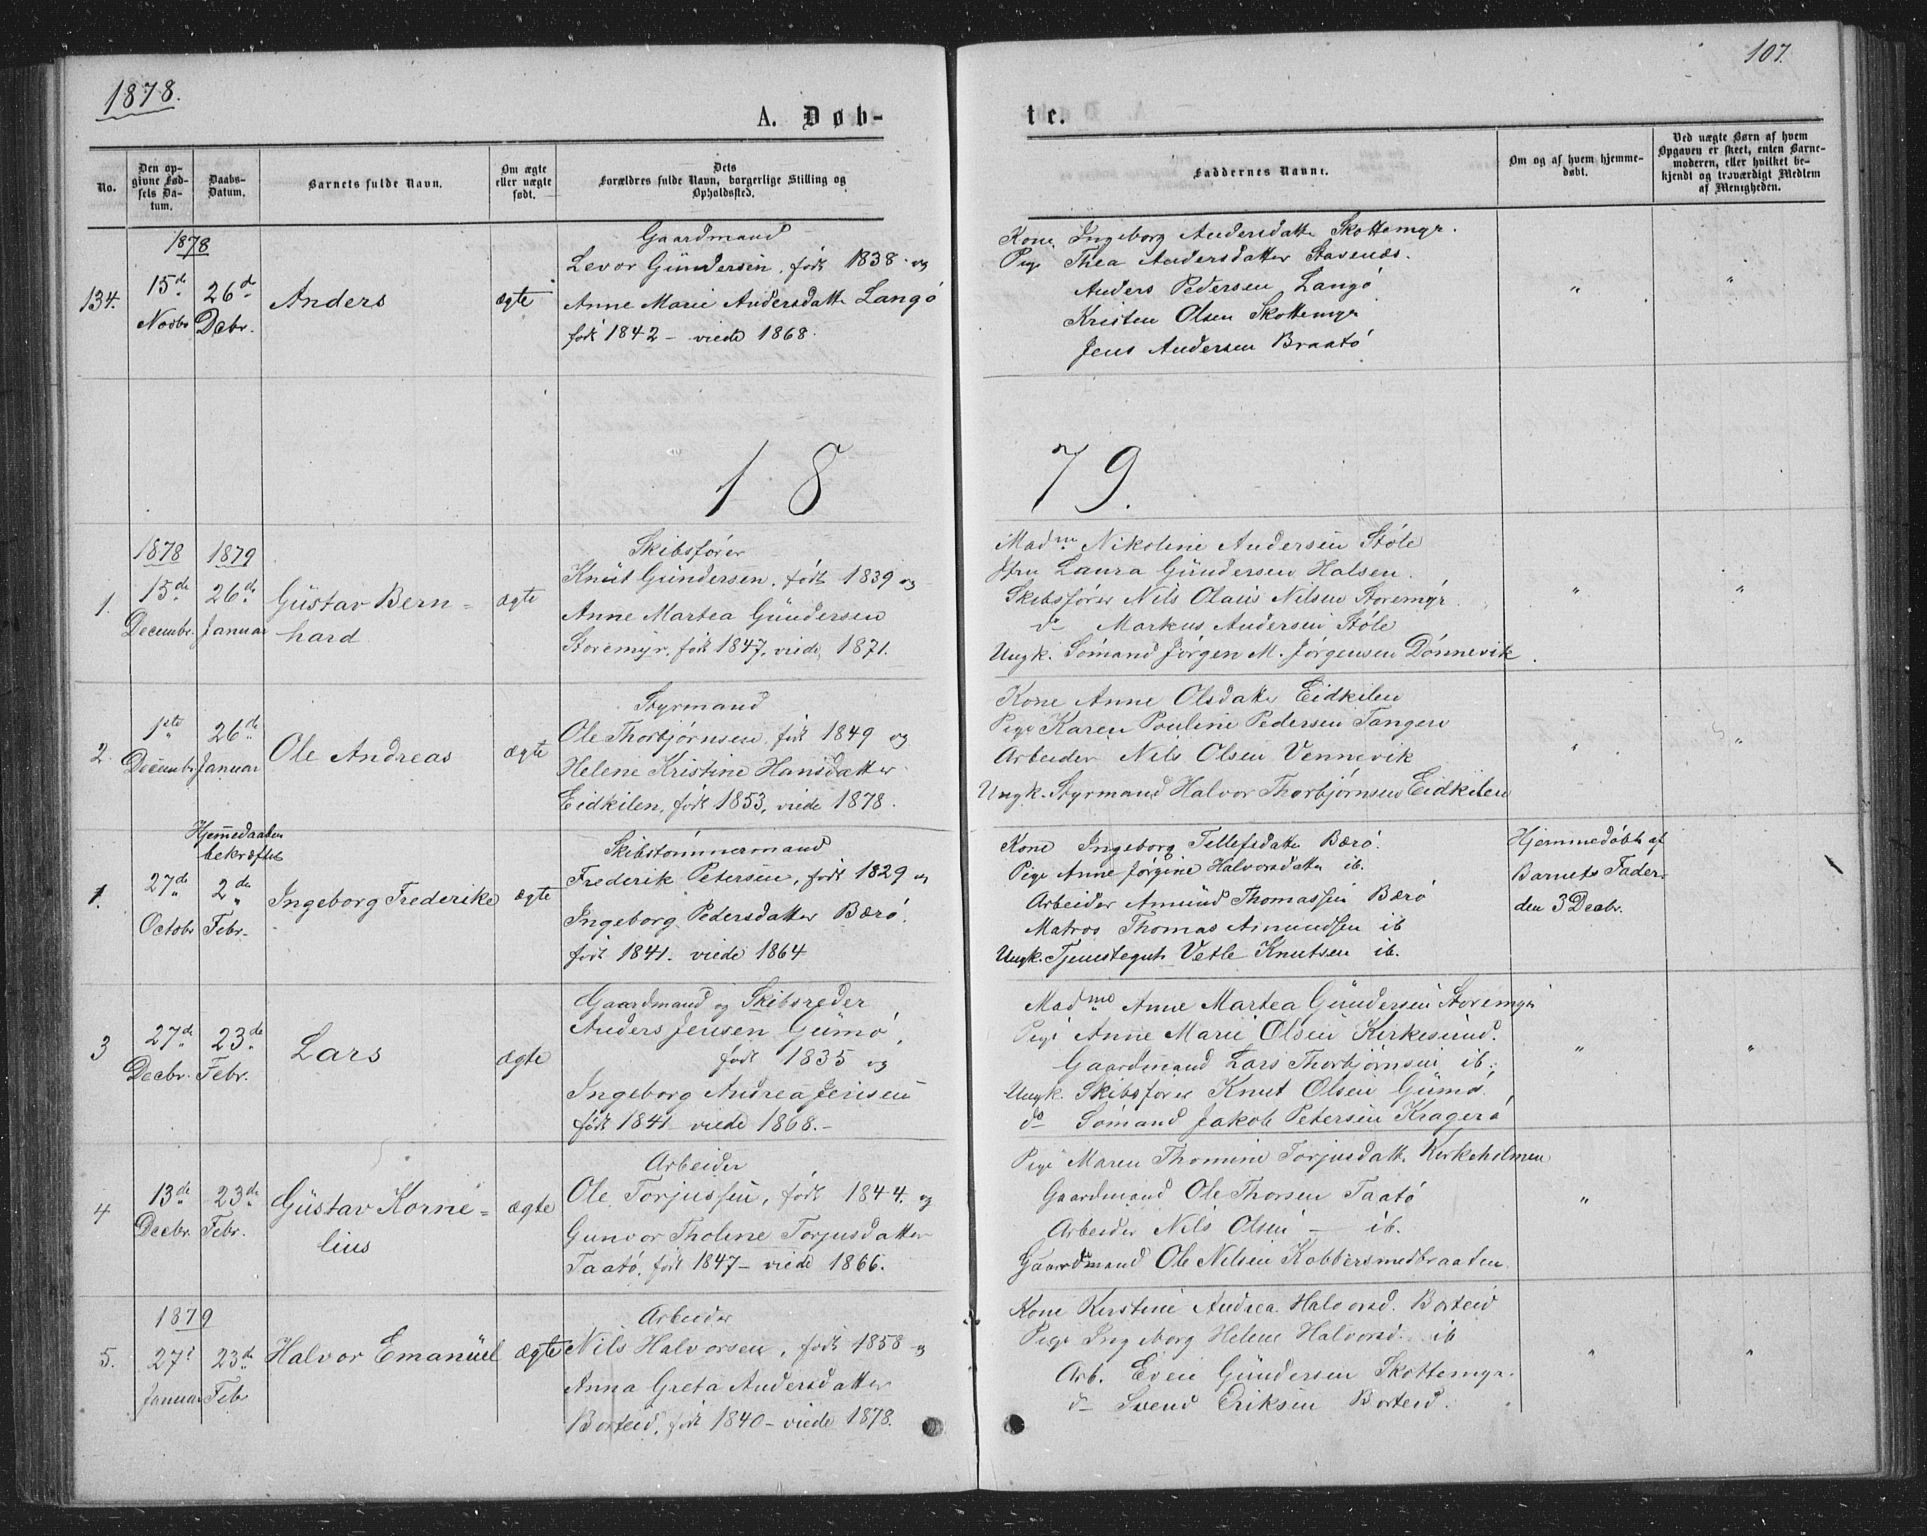 1878.
107.
A. Døb-
te.
No.
Den op-
givne Fød-
sels Da-
tum.
Daabs-
Datum.
Barnets fulde Navn.
Om ægte
eller uægte
født.
Dets
Forældres fulde Navn, borgerlige Stilling og
Opholdssted.
Faddernes Navne.
Om og af hvem hjemme-
døbt.
Ved uægte Børn af hvem
Opgaven er skeet, enten Barne-
moderen, eller hvilket be-
kjendt og troværdigt Medlem
af Menigheden.
134.
1878
15de
Novbr
26de
Decbr.
Anders
ægte
Gaardmand
Levor Gündersen, født 1838 og
Anne Marie Andersdatt. Langö
født 1842 - viede 1868.
Kone Ingeborg Andersdatt. Skottemyr.
Pige Thea Andersdatter Stavenæs.
Anders Pedersen Langö
Kristen Olsen Skottemyr
Jens Andersen Braatö
"
"
1 8
7 9.
1.
1878
15de
Decembr.
1879
26de
Januar
Güstav Bern=
hard
ægte
Skibsfører
Knüt Gündersen, født 1839 og
Anne Martea Gündersen
Storemyr, født 1847, viede 1871.
Madme Nikoline Andersen Støle
Jfru Laura Gündersen Halsen.
Skibsfører Nils Olaüs Nilsen Storemyr
do Markus Andersen Støle
Ungk. Sømand Jörgen M. Jörgensen Dönnevik.
"
"
2.
1ste
Decembr
26de
Januar
Ole Andreas
ægte
Styrmand
Ole Thorbjørnsen, født 1849 og
Helene Kristine Hansdatter
Eidkilen, født 1853, viede 1878.
Kone Anne Olsdatt. Eidkilen
Pige Karen Pouline Pedersen Tangen
Arbeider Nils Olsen Vennevik
Ungk. Styrmand Halvor Thorbjörnsen Eidkilen
"
"
1.
27de
Octobr
Hjemmedaaben
bekræftet
2de
Febr.
Ingeborg Frederike
ægte
Skibstömmermand
Frederik Petersen, født 1829 og
Ingeborg Pedersdatter Bærö.
født 1841. viede 1864
Kone Ingeborg Tellefsdatt. Bærö.
Pige Anne Jørgine Halvorsdatt. ib.
Arbeider Amund Thomassen Bærö
Matros Thomas Amundsen ib
Ungk. Tjenestegut Vetle Knutsen ib.
Hjemmedöbt af
Barnets Fader
den 3 Decbr.
3
27de
Decbr.
23de
Febr.
Lars
ægte
Gaardmand og Skibsreder
Anders Jensen Gümö,
født 1835 og
Ingeborg Andrea Jensen
født 1841 viede 1868.-
Madme Anne Martea Gündersen Storemyr
Pige Anne Marie Olsen Kirkesund.
Gaardmand Lars Thorbjørnsen ib.
Ungk. Skibsfører Knut Olsen Gümö.
do Sömand Jakob Petersen Kragerö
"
"
4
13de
Decbr.
23de
Febr.
Güstav Korne=
lius
ægte
Arbeider
Ole Torjussen, født 1844. og
Gunvor Tholine Torjusdatter
Taatö, født 1847 - viede 1866.
Pige Maren Thomine Torjusdatt. Kirkeholmen
Gaardmand Ole Thorsen Taatö
Arbeider Nils Olsen - ib.
Gaardmand Ole Nilsen Kobbersmedbraaten
"
5.
1879
27de
Januar
23de
Febr
Halvor Emanüel
ægte
Arbeider
Nils Halvorsen, født 1858 og
Anna Greta Andersdatter
Borteid, født 1840 - viede 1878.
Kone Kirstine Andrea Halvorsd. Borteid
Pige Ingeborg Helene Halvorsd. ib
Arb. Even Gündersen Skottemyr.
do Svend Eriksen Borteid.
"
"